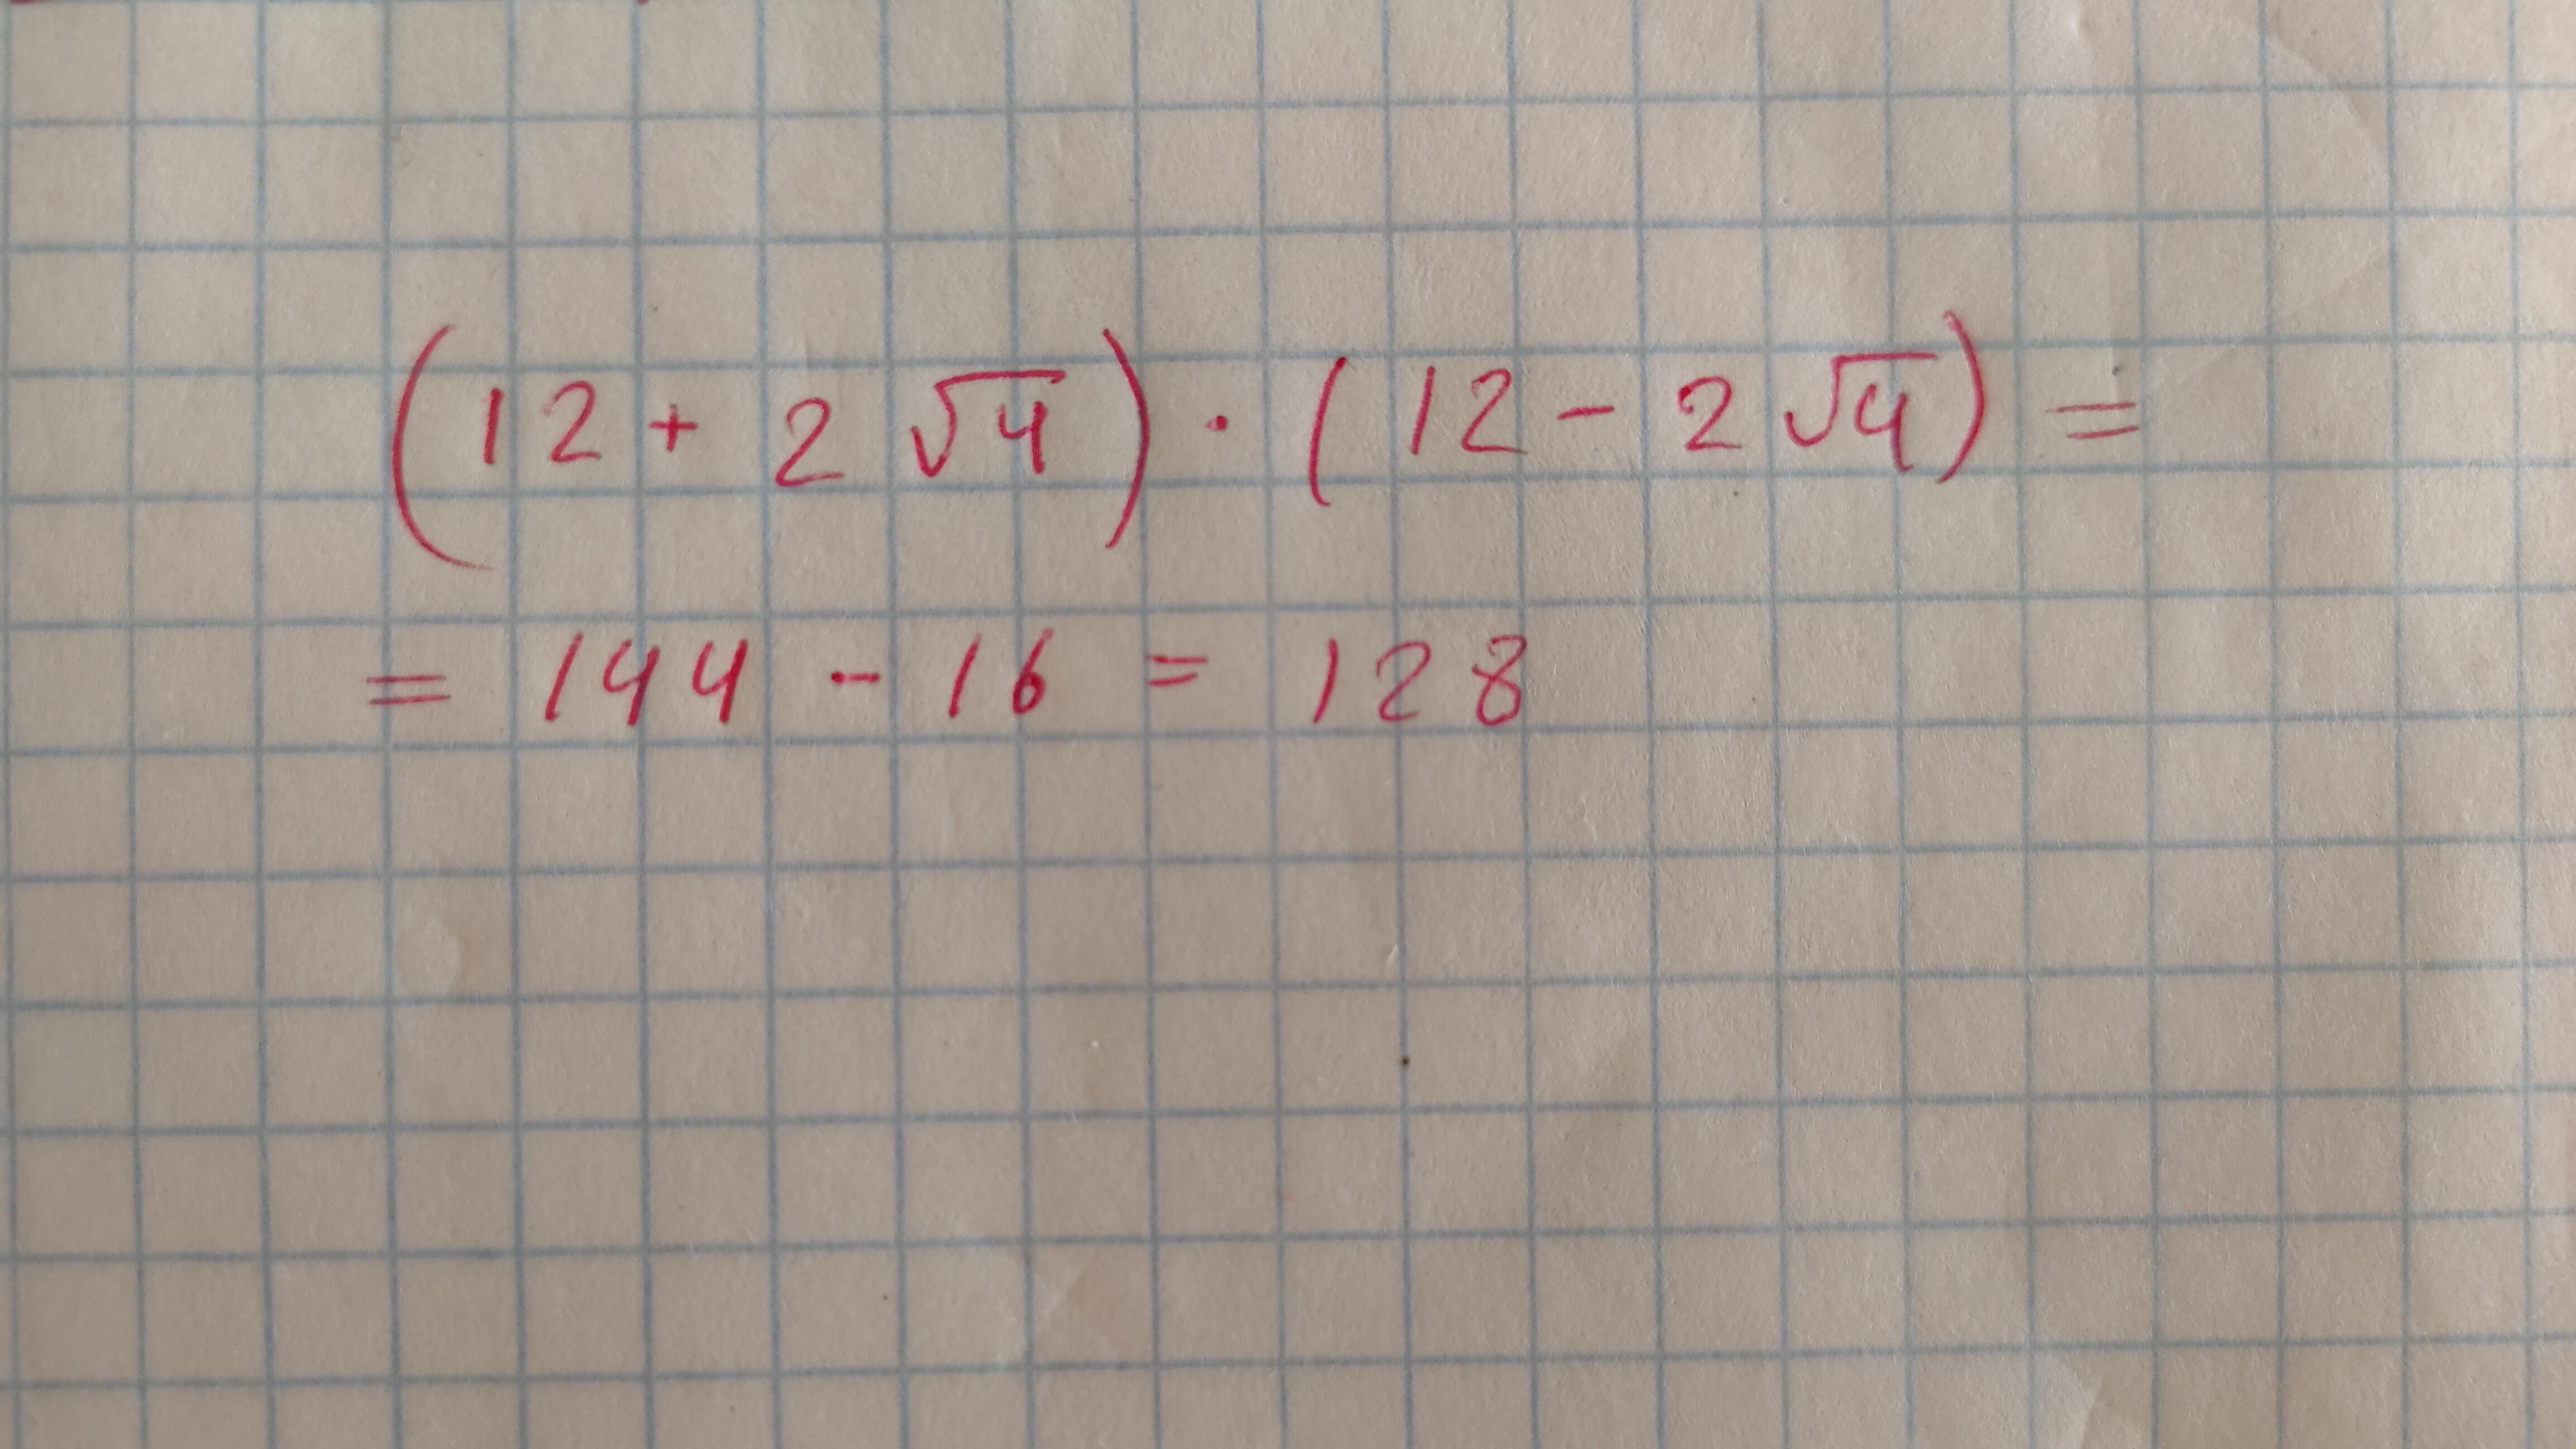 (12 + 2√4) · (12 - 2√4) =
= 144 - 16 = 128